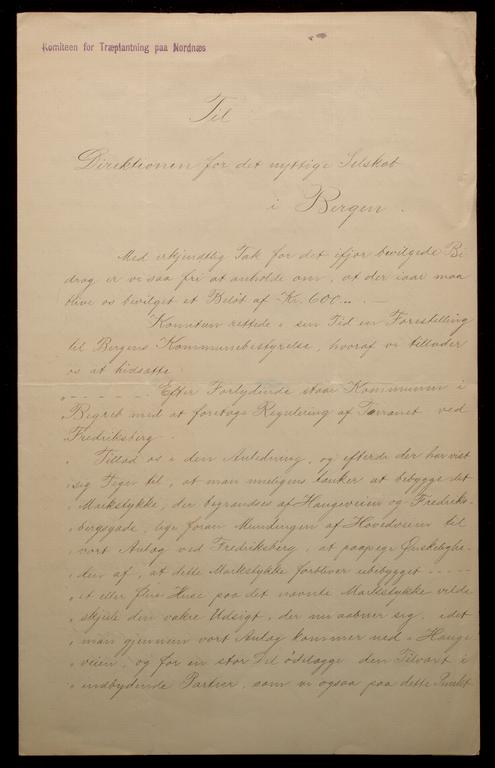 Komiteen for Træplantning paa Nordnæs
Til
Direktionen for det nyttige Selskab
i Bergen.
Med erkjendtlig Tak for det ifjor bevilgede Bi
drag er vi saa fri at anholde om, at der iaar maa
blive os bevilget et Beløb af Kr. 600 „ . —
Komiteen rettede i sin Tid en Forestilling
til Bergens Kommunebestyrelse, hvoraf vi tillader
os at hidsætte:
„ - - - - - Efter Forlydende staar Kommunen i
„ Begreb med at foretage Regulering af Terrænet ved
„ Fredriksberg.
„ Tillad os i den Anledning, og efterde der har vist
„ sig Tegn til, at man muligens tænker at bebygge det
„ Markstykke, der begrændses af Haugeveien og Fredriks-
„ bergsgade, lige foran Mundingen af Hovedveien til
„ vort Anlæg ved Fredriksberg, at paapege Ønskelighe-
„ den af, at dette Markstykke forbliver ubebygget - - - - -
„ et eller flere Huse paa det nævnte Markstykke vilde
„ skjule den vakre Udsigt, der nu aabner sig, idet
„ man gjennem vort Anlæg kommer ned i Hauge
„ veien, og for en stor Del ødelægge den Tilvæxt i
„ indbydende Partier, som vi ogsaa paa dette Punkt